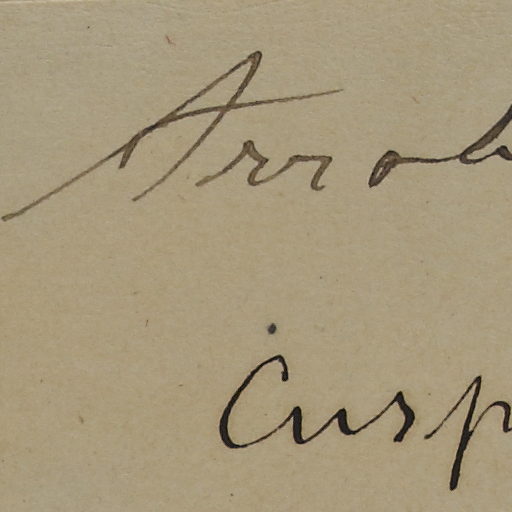 Arrob
Cusp